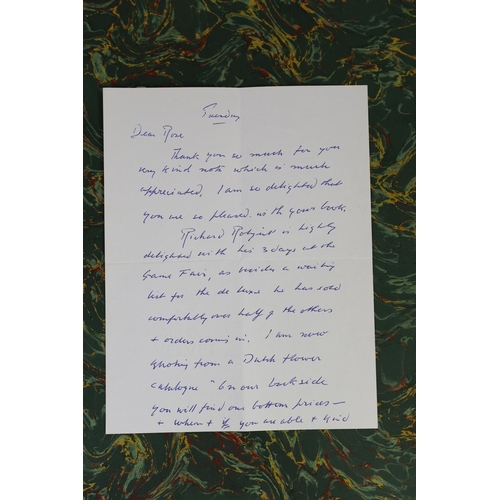 Tuesday
Dear Rose
Thank you so much for your
very kind note which is much
appreciated. I am so delighted that
you are so pleased with your book.
Richard is highly
delighted with his 3 days at the
Game Fair, as besides a waiting
list for the de luxe he has sold
comfortably over half of the others
+ orders coming in. I am now
quoting from a Dutch flower
catalogue "On our backside
you will find our bottom prices —
+ when + if you are able + kind